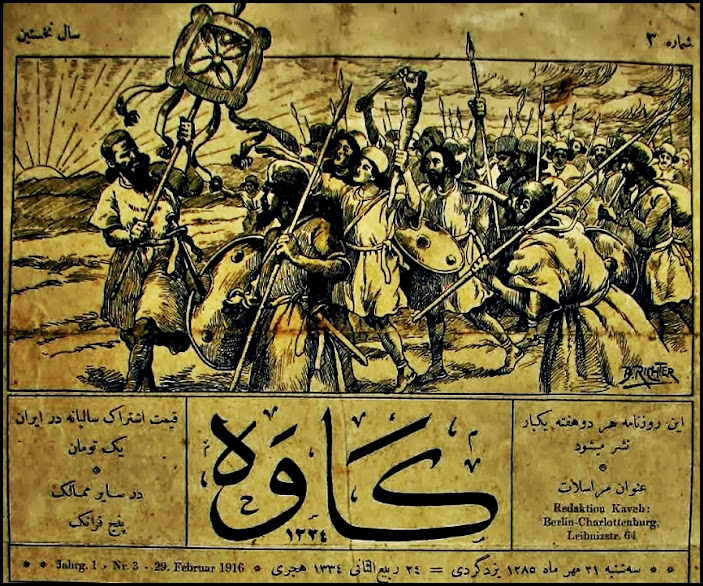 شماره ۳
سال نخستین
B. RICHTER
این روزنامه هر دو هفته یکبار
نشر میشود
*
عنوان مراسلات
Redaktion Kaveh:
Berlin-Charlottenburg,
Leibnizstr. 64
کاوه
۱۲۲۴
قیمت اشتراک سالیانه در ایران
یک تومان
*
در سایر ممالک
پنج فرانک
* * سه‌شنبه ۲۱ مهر ماه ۱۲۸۵ یزدگردی = ۲۴ ربیع الثانی ۱۳۳۴ هجری * Jahrg. 1 · Nr. 3 · 29. Februar 1916 * *